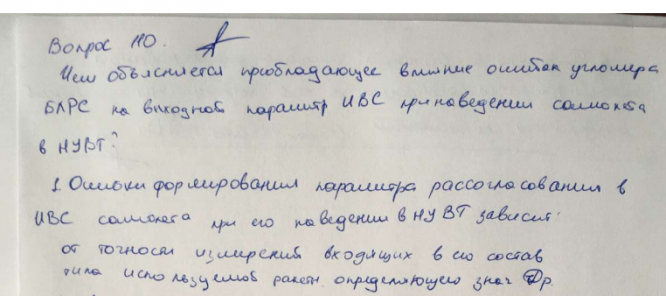 Вопрос 110.
Чем объясняется преобладающее влияние ошибок угломера
БЛРС на выходной параметр ИВС при наведении самолета
в НУВТ?
1. Ошибки формирования параметра рассогласования в
ИВС самолета при его наведении в НУВТ зависит
от точности измерений входящих в его состав
типа используемой ракеты, определяющего знач Др.